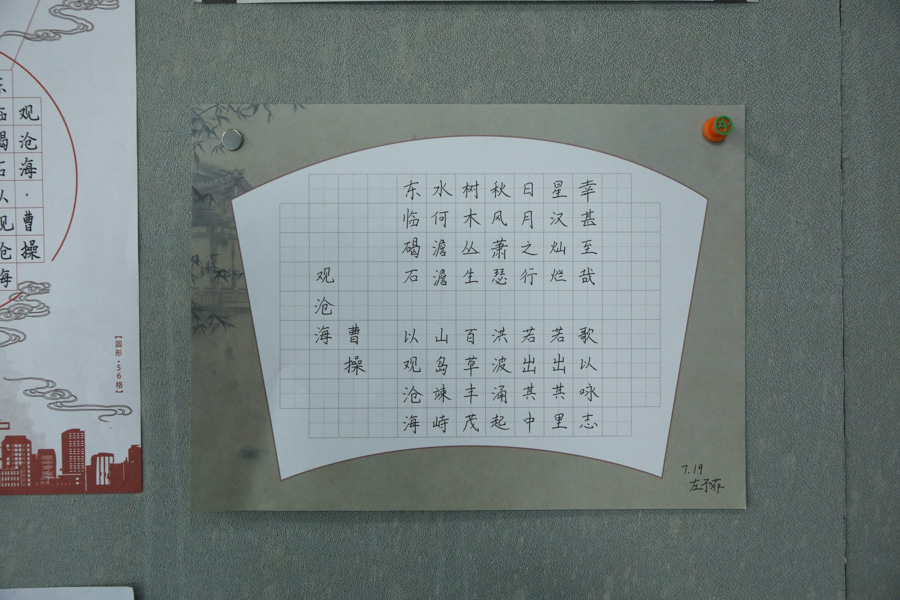 观沧海·曹操
【圆形·56格】
观沧海
曹操
东临碣石 以观沧海
水何澹澹 山岛竦峙
树木丛生 百草丰茂
秋风萧瑟 洪波涌起
日月之行 若出其中
星汉灿烂 若出其里
幸甚至哉 歌以咏志
7.19
左予菲